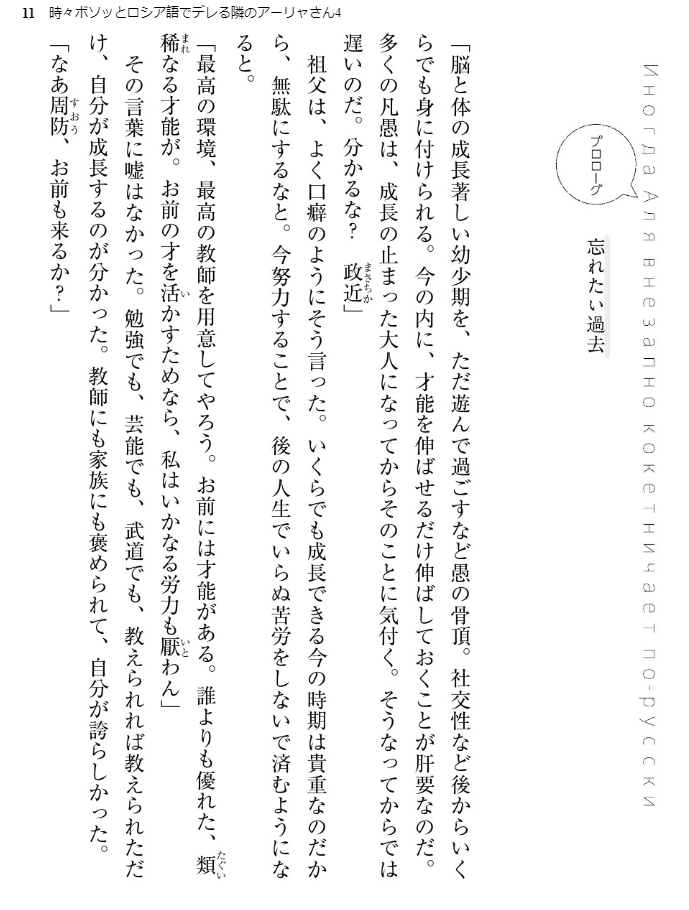 11 時々ボソッとロシア語でデレる隣のアーリャさん4
Иногда Аля внезапно кокетничает по-русски
プロローグ
忘れたい過去
「脳と体の成長著しい幼少期を、ただ遊んで過ごすなど愚の骨頂。社交性など後からいく
らでも身に付けられる。今の内に、才能を伸ばせるだけ伸ばしておくことが肝要なのだ。
多くの凡愚は、成長の止まった大人になってからそのことに気付く。そうなってからでは
遅いのだ。分かるな？　政近」
まさちか
祖父は、よく口癖のようにそう言った。いくらでも成長できる今の時期は貴重なのだか
ら、無駄にするなと。今努力することで、後の人生でいらぬ苦労をしないで済むようにな
ると。
「最高の環境、最高の教師を用意してやろう。お前には才能がある。誰よりも優れた、類
たぐい
稀なる才能が。お前の才を活かすためなら、私はいかなる労力も厭わん」
まれ
い
いと
その言葉に嘘はなかった。勉強でも、芸能でも、武道でも、教えられれば教えられただ
け、自分が成長するのが分かった。教師にも家族にも褒められて、自分が誇らしかった。
「なあ周防、お前も来るか？」
すおう